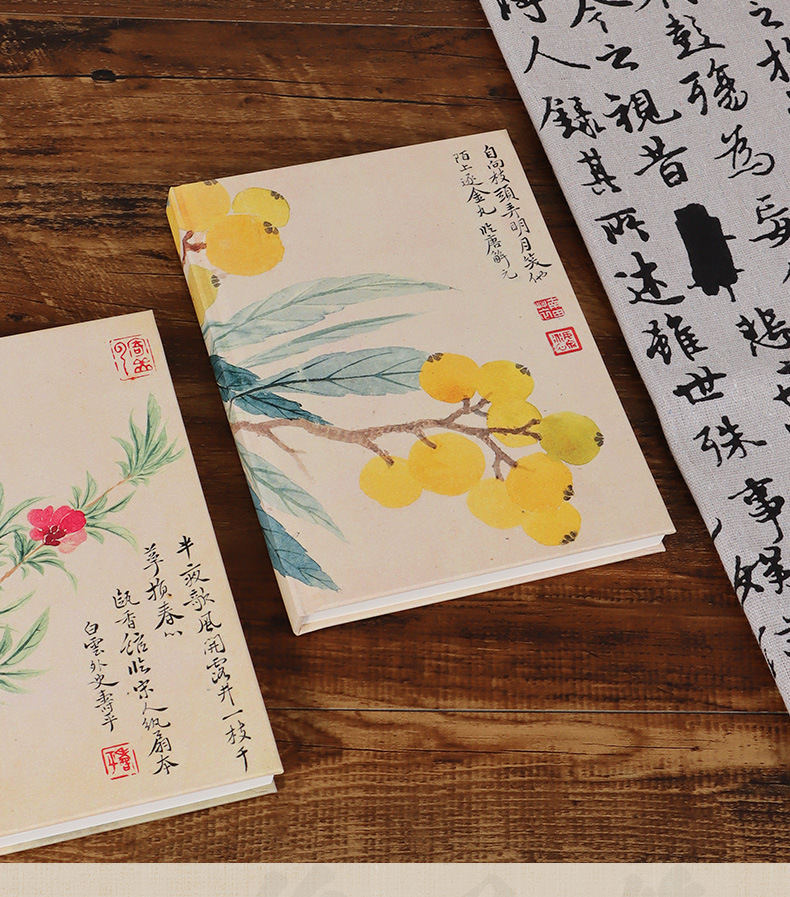 自向枝頭弄明月笑他
陌上逐金丸 臨唐解元
半夜歌風開露井一枝千
萼損春心
甌香館臨宋人紈扇本
白雲外史壽平
壽平
彭殤為妄
今之視昔
悲
人錄其所述雖世殊事